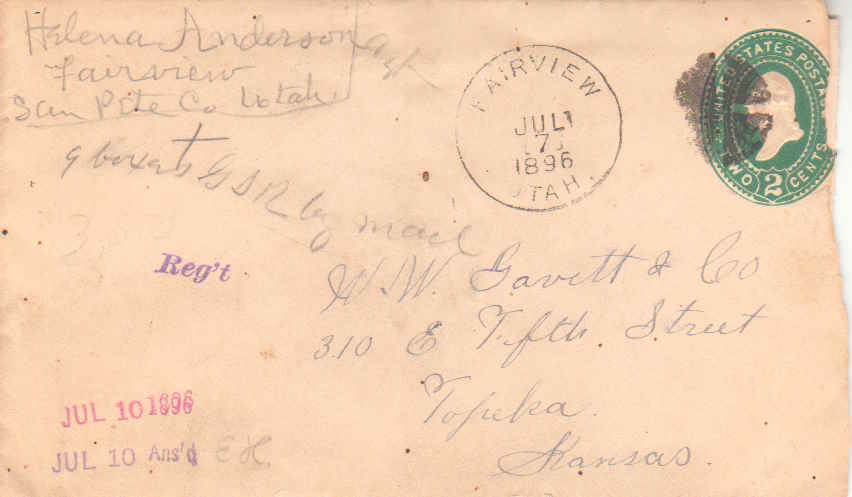 Helena Anderson Agt
Fairview
San Pete Co Utah.
9 boxes G S R by mail
FAIRVIEW
JUL
7
1896
UTAH.
UNITED STATES POSTAGE
TWO 2 CENTS
Reg't
W. W. Gavitt & Co
310 E Fifth Street
Topeka.
Kansas.
JUL 10 1896
JUL 10 Ans'd E H.